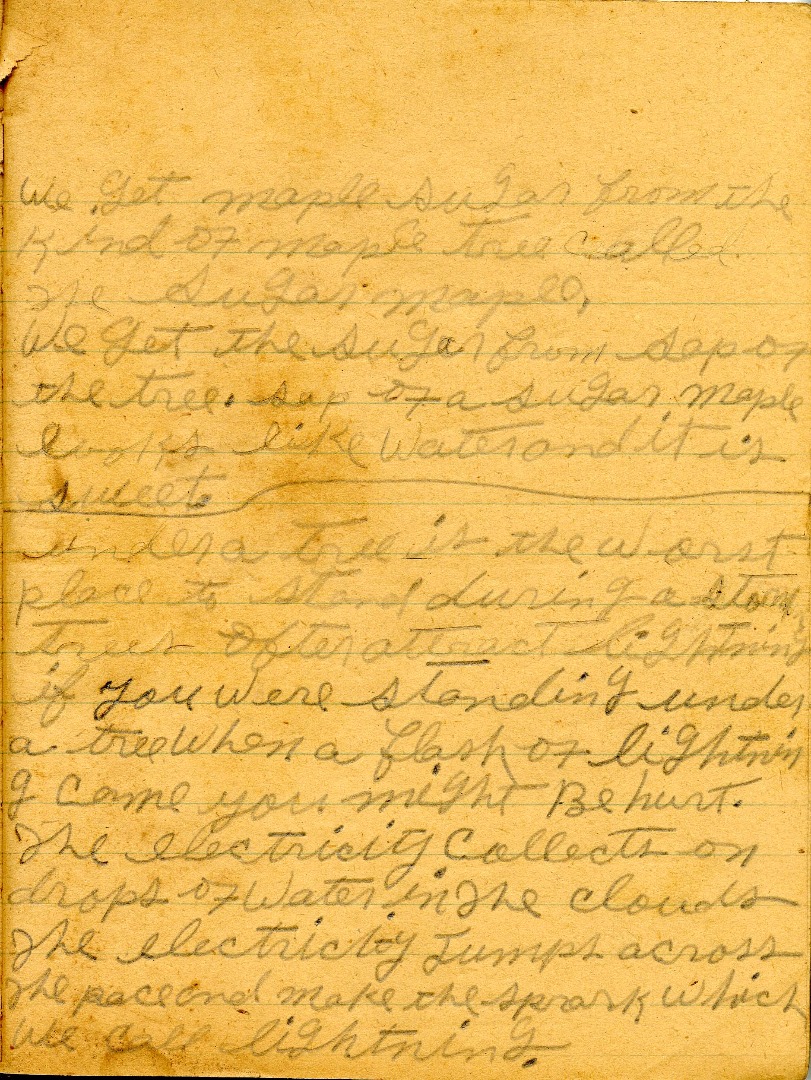 We get maple sugar from the
kind of maple tree called
the sugar maple,
We get the sugar from sap of
the tree. sap of a sugar maple
looks like Water and it is
sweet
under a tree is the worst
place to stand during a storm,
trees often attract lightning
if you were standing under
a tree When a flash of lightnin
g came you might Be hurt.
The electricity Collects on
drops of Water in The clouds
The electricity Jumps across
The pace and make the spark which
We call lightning.